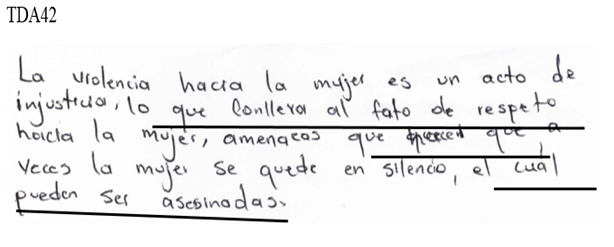 TDA42
La violencia hacia la mujer es un acto de
injusticia, lo que Conlleva al fato de respeto
hacia la mujer, amenacas que que, a
veces la mujer se quede en silencio, el cual
pueden ser asesinadas.